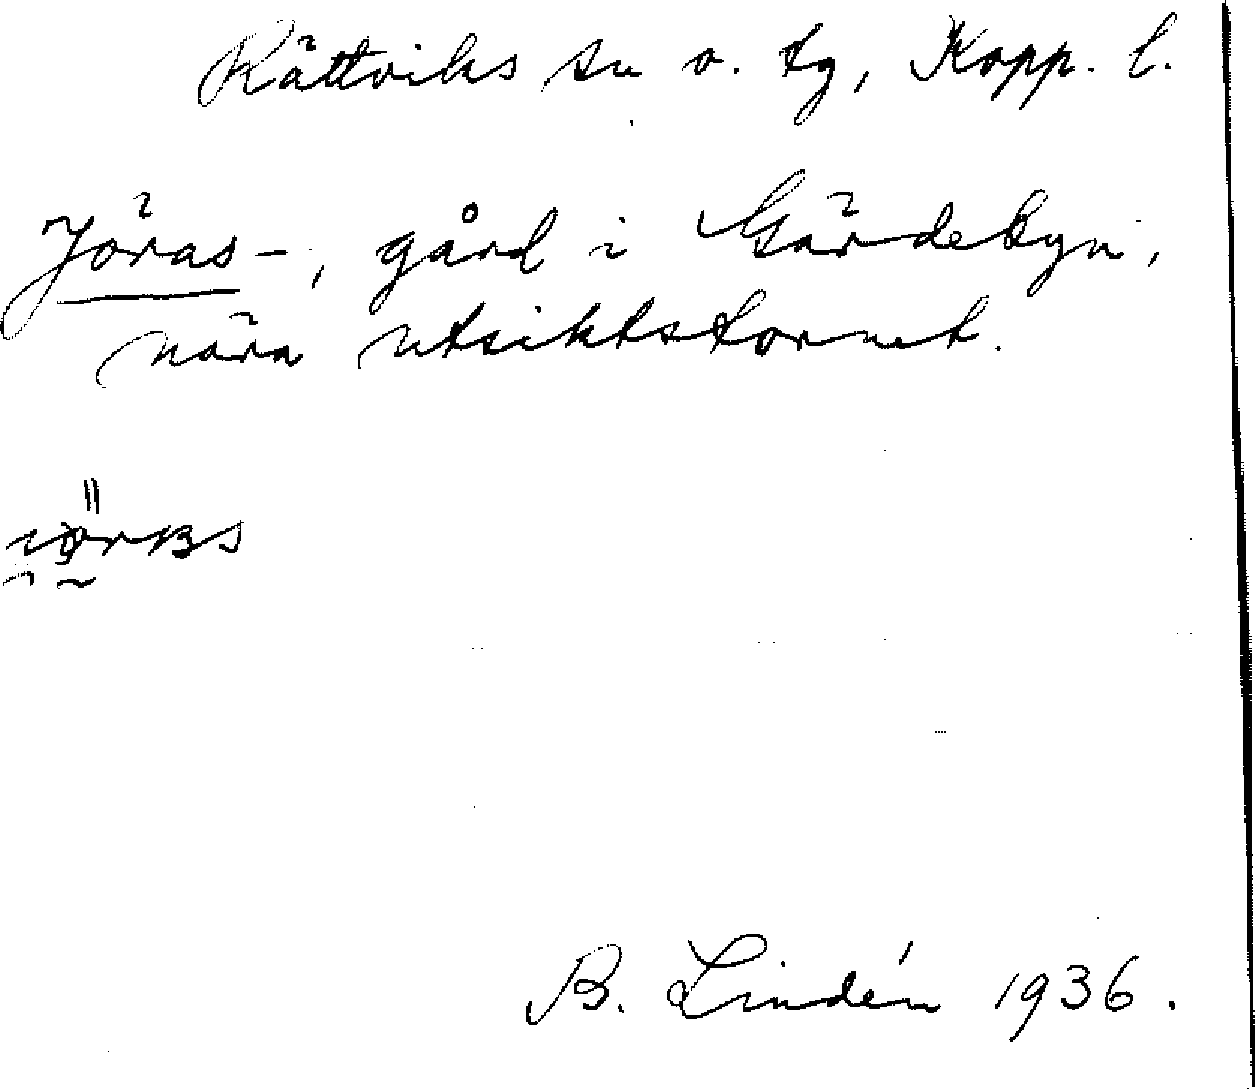 Rättviks sn o. tg, Kopp. l.
Jöras-, gård i Gärdebyn,
nära utsiktstornet.
B. Lindén 1936.